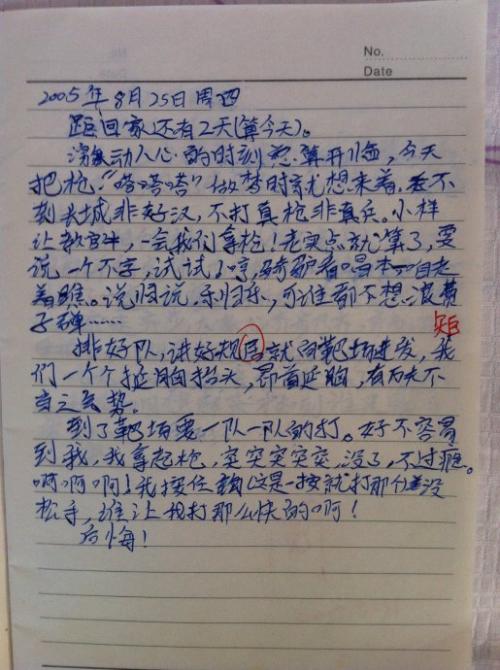 No.
Date
2005年8月25日周四
距回家还有2天(算今天)。
激动人心的时刻总算开临,今天
把枪!"嗒嗒嗒"做梦时就想来着,不
到长城非好汉,不打真枪非真兵。小样
让教官牛,一会我们拿枪!老实点就算了,要
说一个不字,试试!哼,骑驴看唱本——自走
着瞧。说归说,乐归乐,可谁都不想浪费
子弹……
矩
排好队,讲好规后就向靶场进发,我
们一个个挺胸抬头,昂首挺胸,有万夫不
当之气势。
到了靶场要一队一队的打。好不容易
到我,我拿起枪,突突突突突,没了,不过瘾。
啊啊啊!我按住(这是一按就打那什么)没
松手,谁让我打那么快的啊!
后悔!